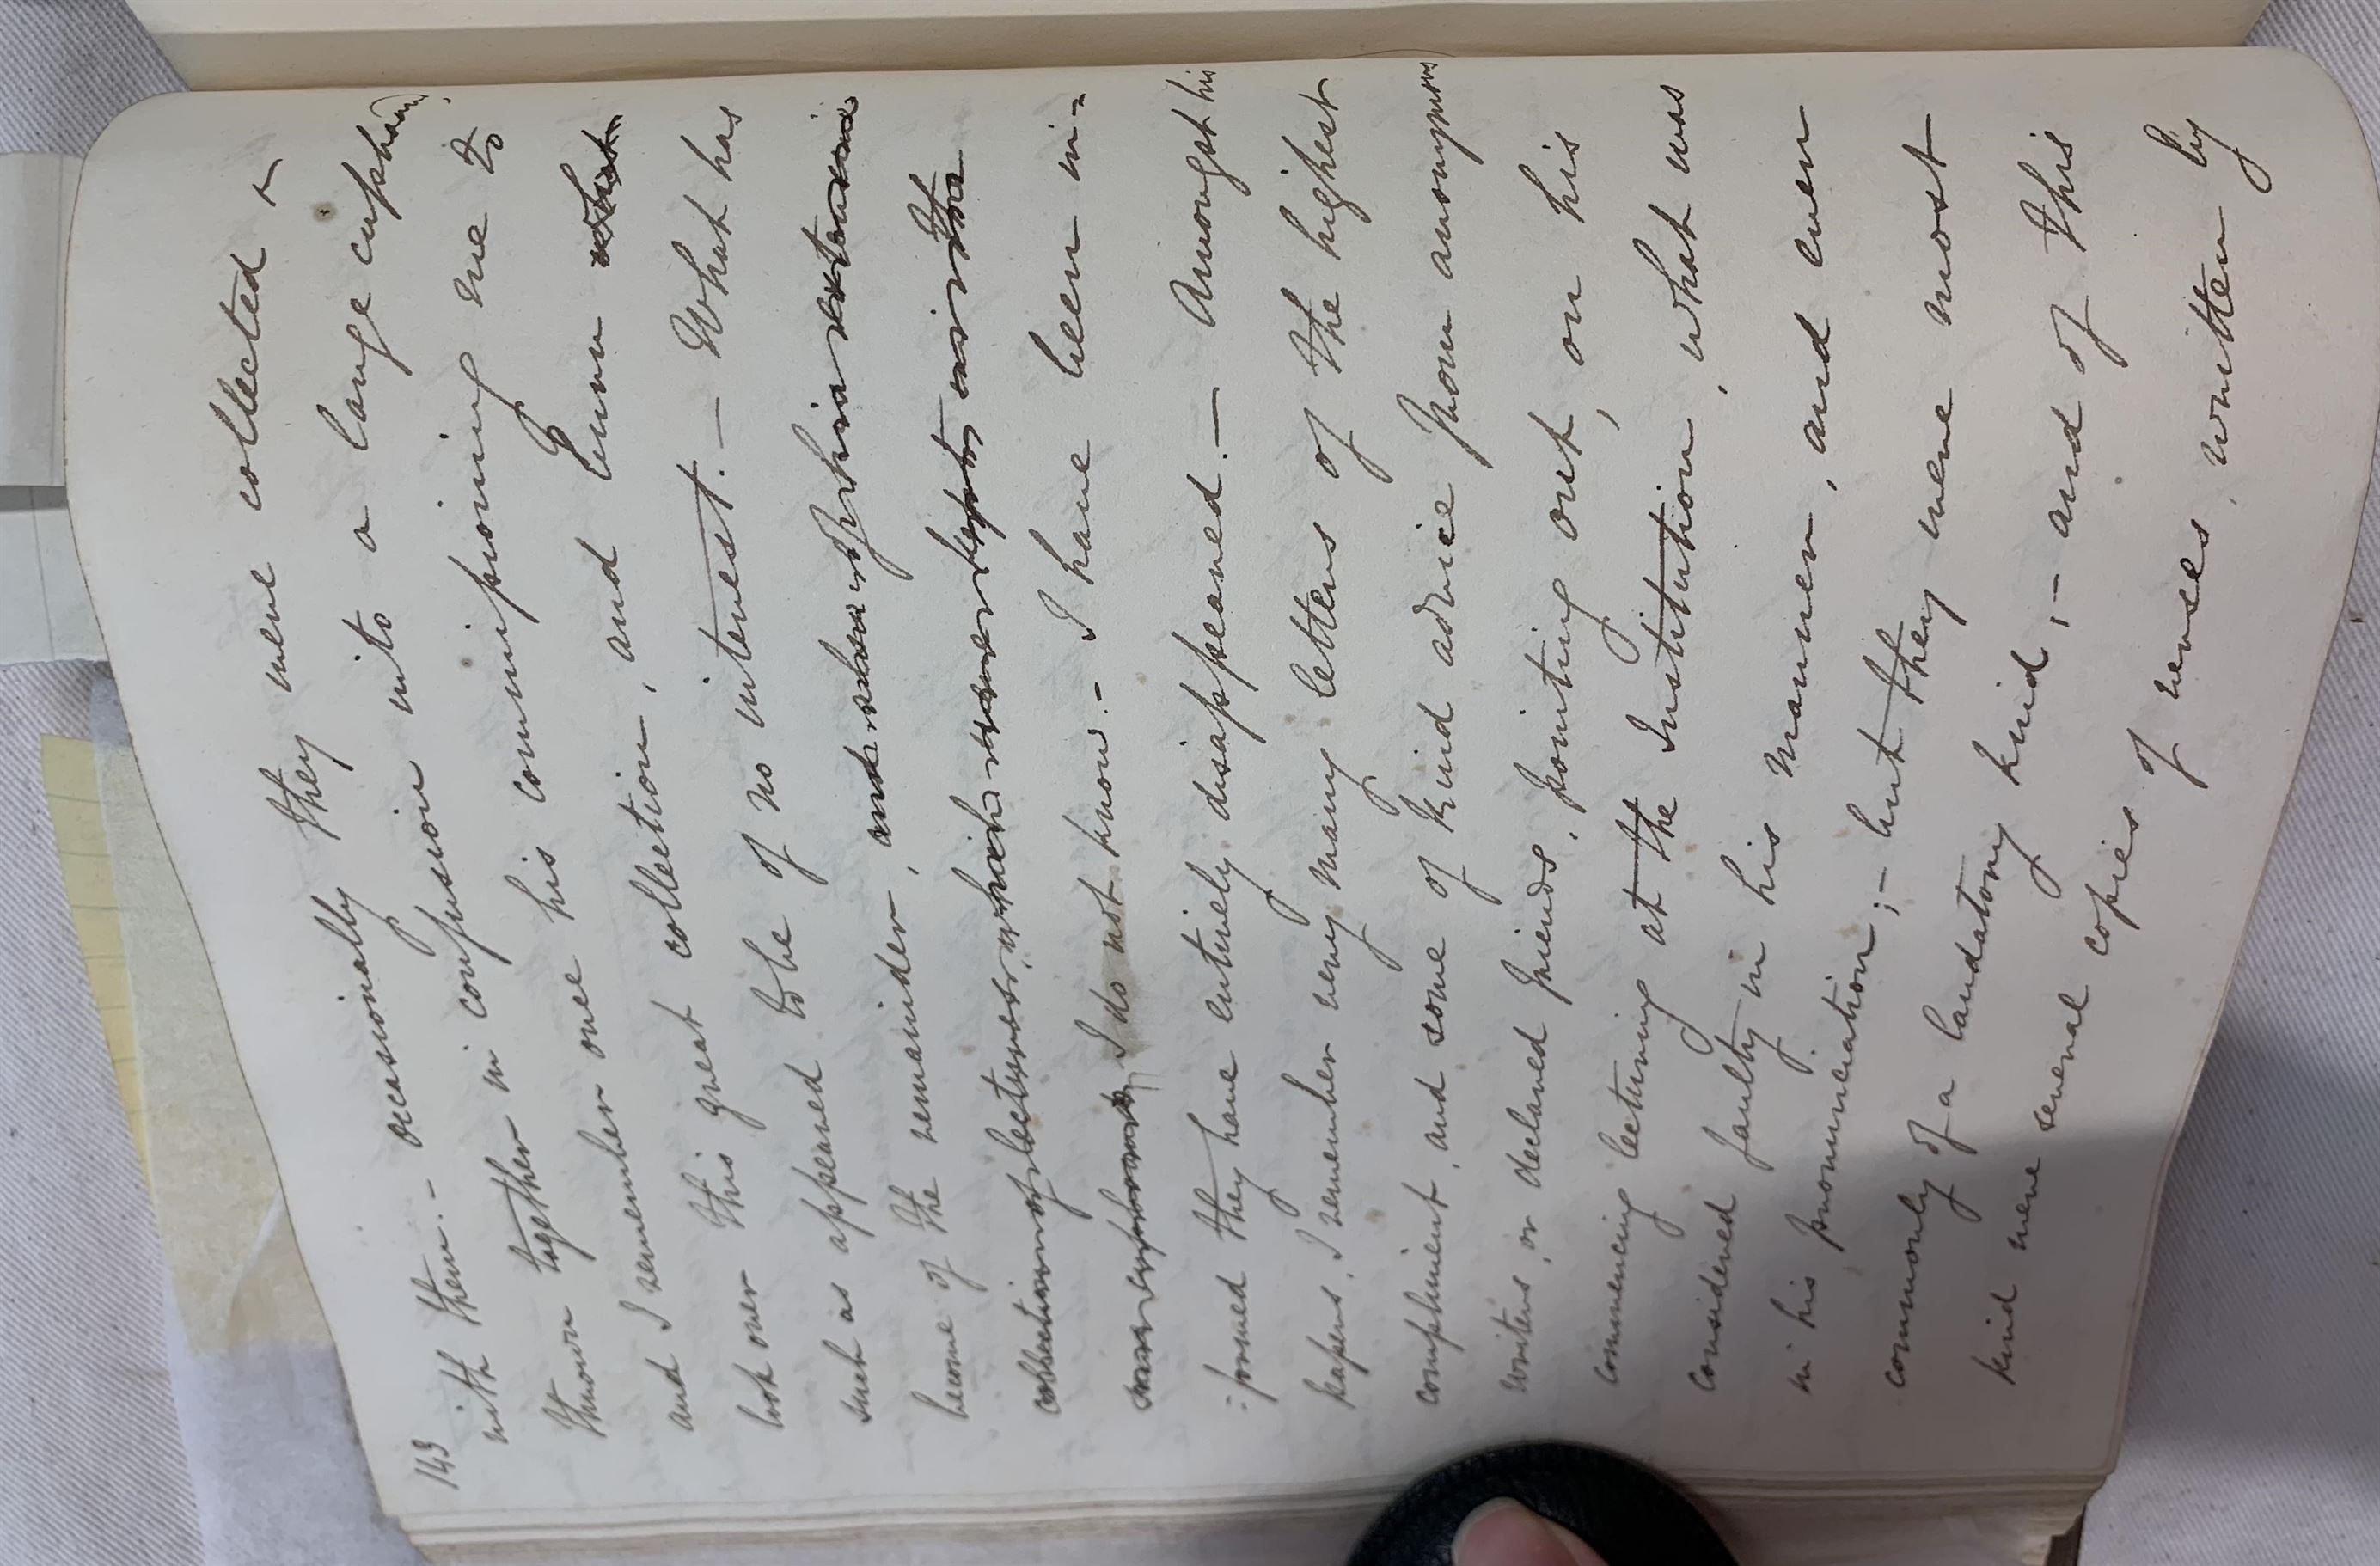 143
with them. - occasionally they were collected &
thrown together in confusion into a large cupboard,
and I remember once his commissioning me to
look over this great collection, and burn what
such as appeared to be of no interest. - What has
become of the remainder, and whose
collection of lectures, which were kept in the
I do not know. - I have been in=
=formed they have entirely disappeared. - Amongst his
papers, I remember very many letters of the highest
compliment, and some of kind advice from anonymous
writers, or declared friends, pointing out, on his
commencing lecturing at the Institution, what was
considered faulty in his manner, and even
in his pronunciation; - but they were most
commonly of a laudatory kind; - and of this
kind were several copies of verses, written by